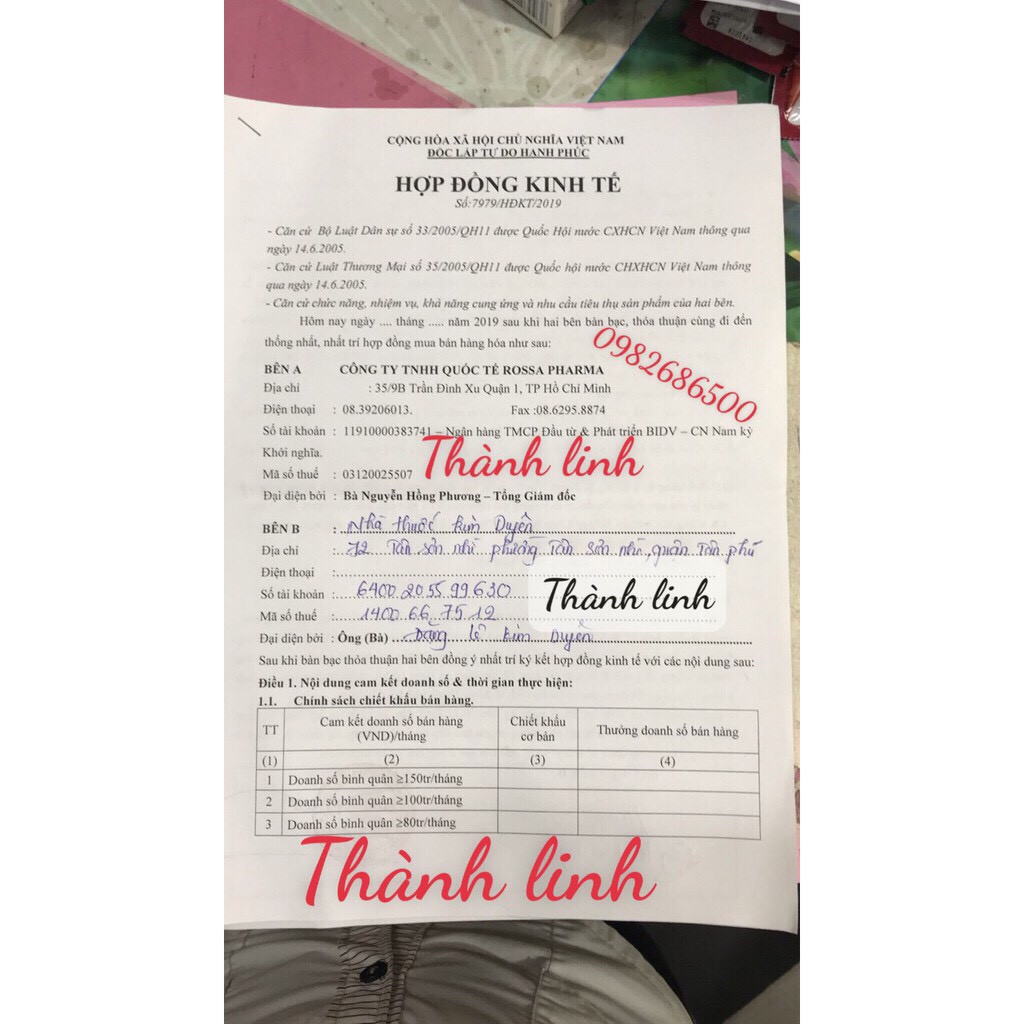 CỘNG HÒA XÃ HỘI CHỦ NGHĨA VIỆT NAM
ĐỘC LẬP TỰ DO HẠNH PHÚC
HỢP ĐỒNG KINH TẾ
Số:7979/HĐKT/2019
- Căn cứ Bộ Luật Dân sự số 33/2005/QH11 được Quốc Hội nước CXHCN Việt Nam thông qua
ngày 14.6.2005.
- Căn cứ Luật Thương Mại số 35/2005/QH11 được Quốc hội nước CHXHCN Việt Nam thông
qua ngày 14.6.2005.
- Căn cứ chức năng, nhiệm vụ, khả năng cung ứng và nhu cầu tiêu thụ sản phẩm của hai bên.
Hôm nay ngày .... tháng ..... năm 2019 sau khi hai bên bàn bạc, thỏa thuận cùng đi đến
thống nhất, nhất trí hợp đồng mua bán hàng hóa như sau:
0982686500
BÊN A CÔNG TY TNHH QUỐC TẾ ROSSA PHARMA
Địa chỉ : 35/9B Trần Đình Xu Quận 1, TP Hồ Chí Minh
Điện thoại : 08.39206013. Fax :08.6295.8874
Số tài khoản : 11910000383741 – Ngân hàng TMCP Đầu tư & Phát triển BIDV – CN Nam kỳ
Khởi nghĩa.
Thành linh
Mã số thuế : 03120025507
Đại diện bởi : Bà Nguyễn Hồng Phương – Tổng Giám đốc
BÊN B : Nhà thuốc Kim Duyên
Địa chỉ : 72 Tân sơn nhì phường Tân sơn nhì, quận Tân phú
Điện thoại :
Số tài khoản : 6400 20 55 99630
Thành linh
Mã số thuế : 1400 66 75 12
Đại diện bởi : Ông (Bà) Đặng lê Kim Duyên
Sau khi bàn bạc thỏa thuận hai bên đồng ý nhất trí ký kết hợp đồng kinh tế với các nội dung sau:
Điều 1. Nội dung cam kết doanh số & thời gian thực hiện:
1.1. Chính sách chiết khấu bán hàng.
TT Cam kết doanh số bán hàng (VND)/tháng Chiết khấu cơ bản Thưởng doanh số bán hàng
(1) (2) (3) (4)
1 Doanh số bình quân ≥150tr/tháng
2 Doanh số bình quân ≥100tr/tháng
3 Doanh số bình quân ≥80tr/tháng
Thành linh